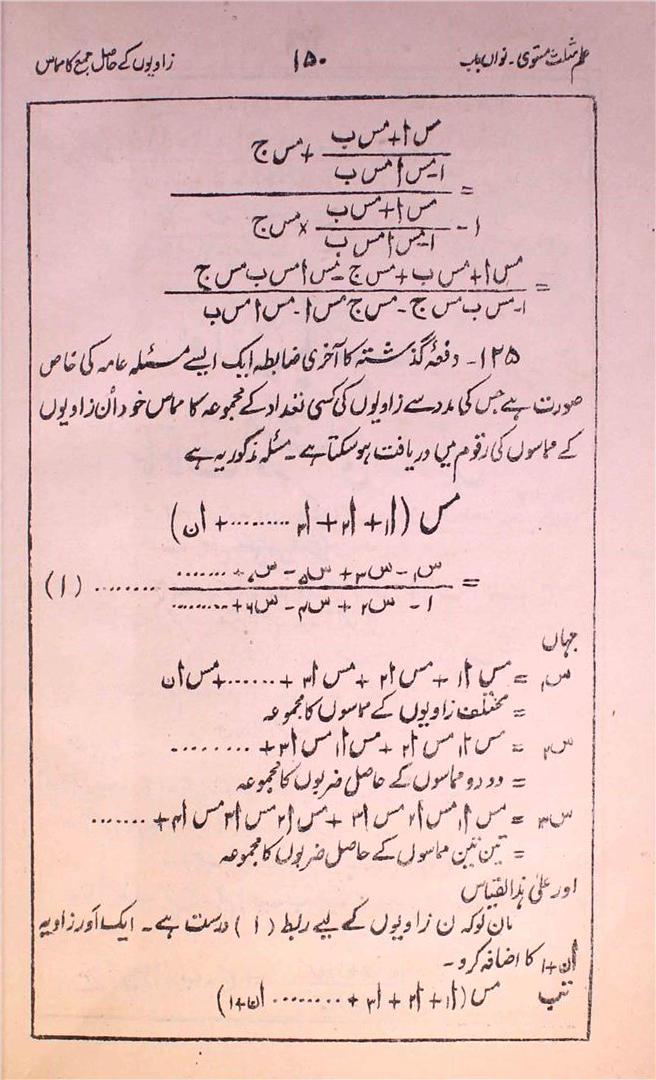 علم مثلث مستوی ۔ نواں باب ۱۵۰ زاویوں کے حاصل جمع کا مماس
= ((مس ا + مس ب) / (۱ - مس ا مس ب) + مس ج) / (۱ - (مس ا + مس ب) / (۱ - مس ا مس ب) × مس ج)
= (مس ا + مس ب + مس ج - مس ا مس ب مس ج) / (۱ - مس ب مس ج - مس ج مس ا - مس ا مس ب)
۱۲۵ ۔ دفعۂ گذشتہ کا آخری ضابطہ ایک ایسے مسئلہ عامہ کی خاص
صورت ہے جس کی مدد سے زاویوں کی کسی تعداد کے مجموعہ کا مماس خود اُن زاویوں
کے مماسوں کی رقوم میں دریافت ہو سکتا ہے ۔ مسئلہ مذکور یہ ہے
مس (ا۱ + ا۲ + ا۳ ......... + ان)
= (س۱ - س۳ + س۵ - س۷ + .......) / (۱ - س۲ + س۴ - س۶ + .........) ........ (۱)
جہاں
س۱ = مس ا۱ + مس ا۲ + مس ا۳ + ....... + مس ان
= مختلف زاویوں کے مماسوں کا مجموعہ
س۲ = مس ا۱ مس ا۲ + مس ا۱ مس ا۳ + ........
= دو دو مماسوں کے حاصل ضربوں کا مجموعہ
س۳ = مس ا۱ مس ا۲ مس ا۳ + مس ا۲ مس ا۳ مس ا۴ + .......
= تین تین مماسوں کے حاصل ضربوں کا مجموعہ
اور علیٰ ہذا القیاس
مان لو کہ ن زاویوں کے لیے ربط (۱) درست ہے ۔ ایک اَور زاویہ
ان+۱ کا اضافہ کرو ۔
تب مس (ا۱ + ا۲ + ا۳ + ......... ان+۱)